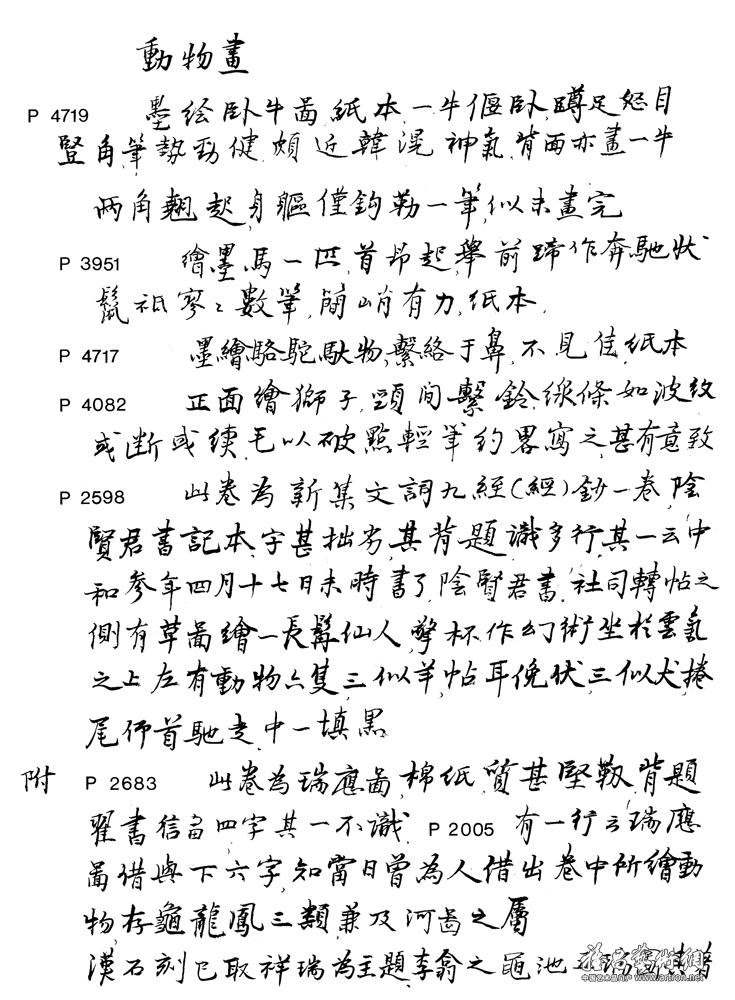 動物畫
P 4719 墨绘卧牛啚,紙本,一牛偃卧,蹲足怒目
豎角,筆勢勁健,頗近韓滉神氣,背面亦畫一牛
兩角翹起,身軀僅鈎勒一筆,似未畫完
P 3951 繪墨馬一匹,首昂起,舉前蹄作奔馳狀
鬣祇寥々數筆,簡峭有力,紙本.
P 4717 墨繪駱駝馱物,繫絡于鼻,不見佳,紙本
P 4082 正面繪獅子,頸間繫鈴,線條如波紋
或断或续,毛以破點輕筆約畧寫之,甚有意致
P 2598 此卷為新集文詞九經(經)鈔一卷,陰
賢君書記本,字甚拙劣,其背題識多行,其一云中
和參年四月十七日未時書了,陰賢君書,社司轉帖之
側有草啚繪一長髯仙人,擎杯作幻術坐於雲氣
之上左有動物六隻,三似羊,帖耳俛伏,三似犬,捲
尾仰首馳走,中一填黑
附 P 2683 此卷為瑞應啚,棉纸,質甚堅靱,背題
翟書信啚四字其一不識. P 2005 有一行云瑞應
啚借與下六字,知當日曾為人借出卷中所繪動
物存龜龍鳳三類,兼及河啚之屬
漢石刻已取祥瑞為主題,李翕之黽池
中国艺术品门户 www.artron.net